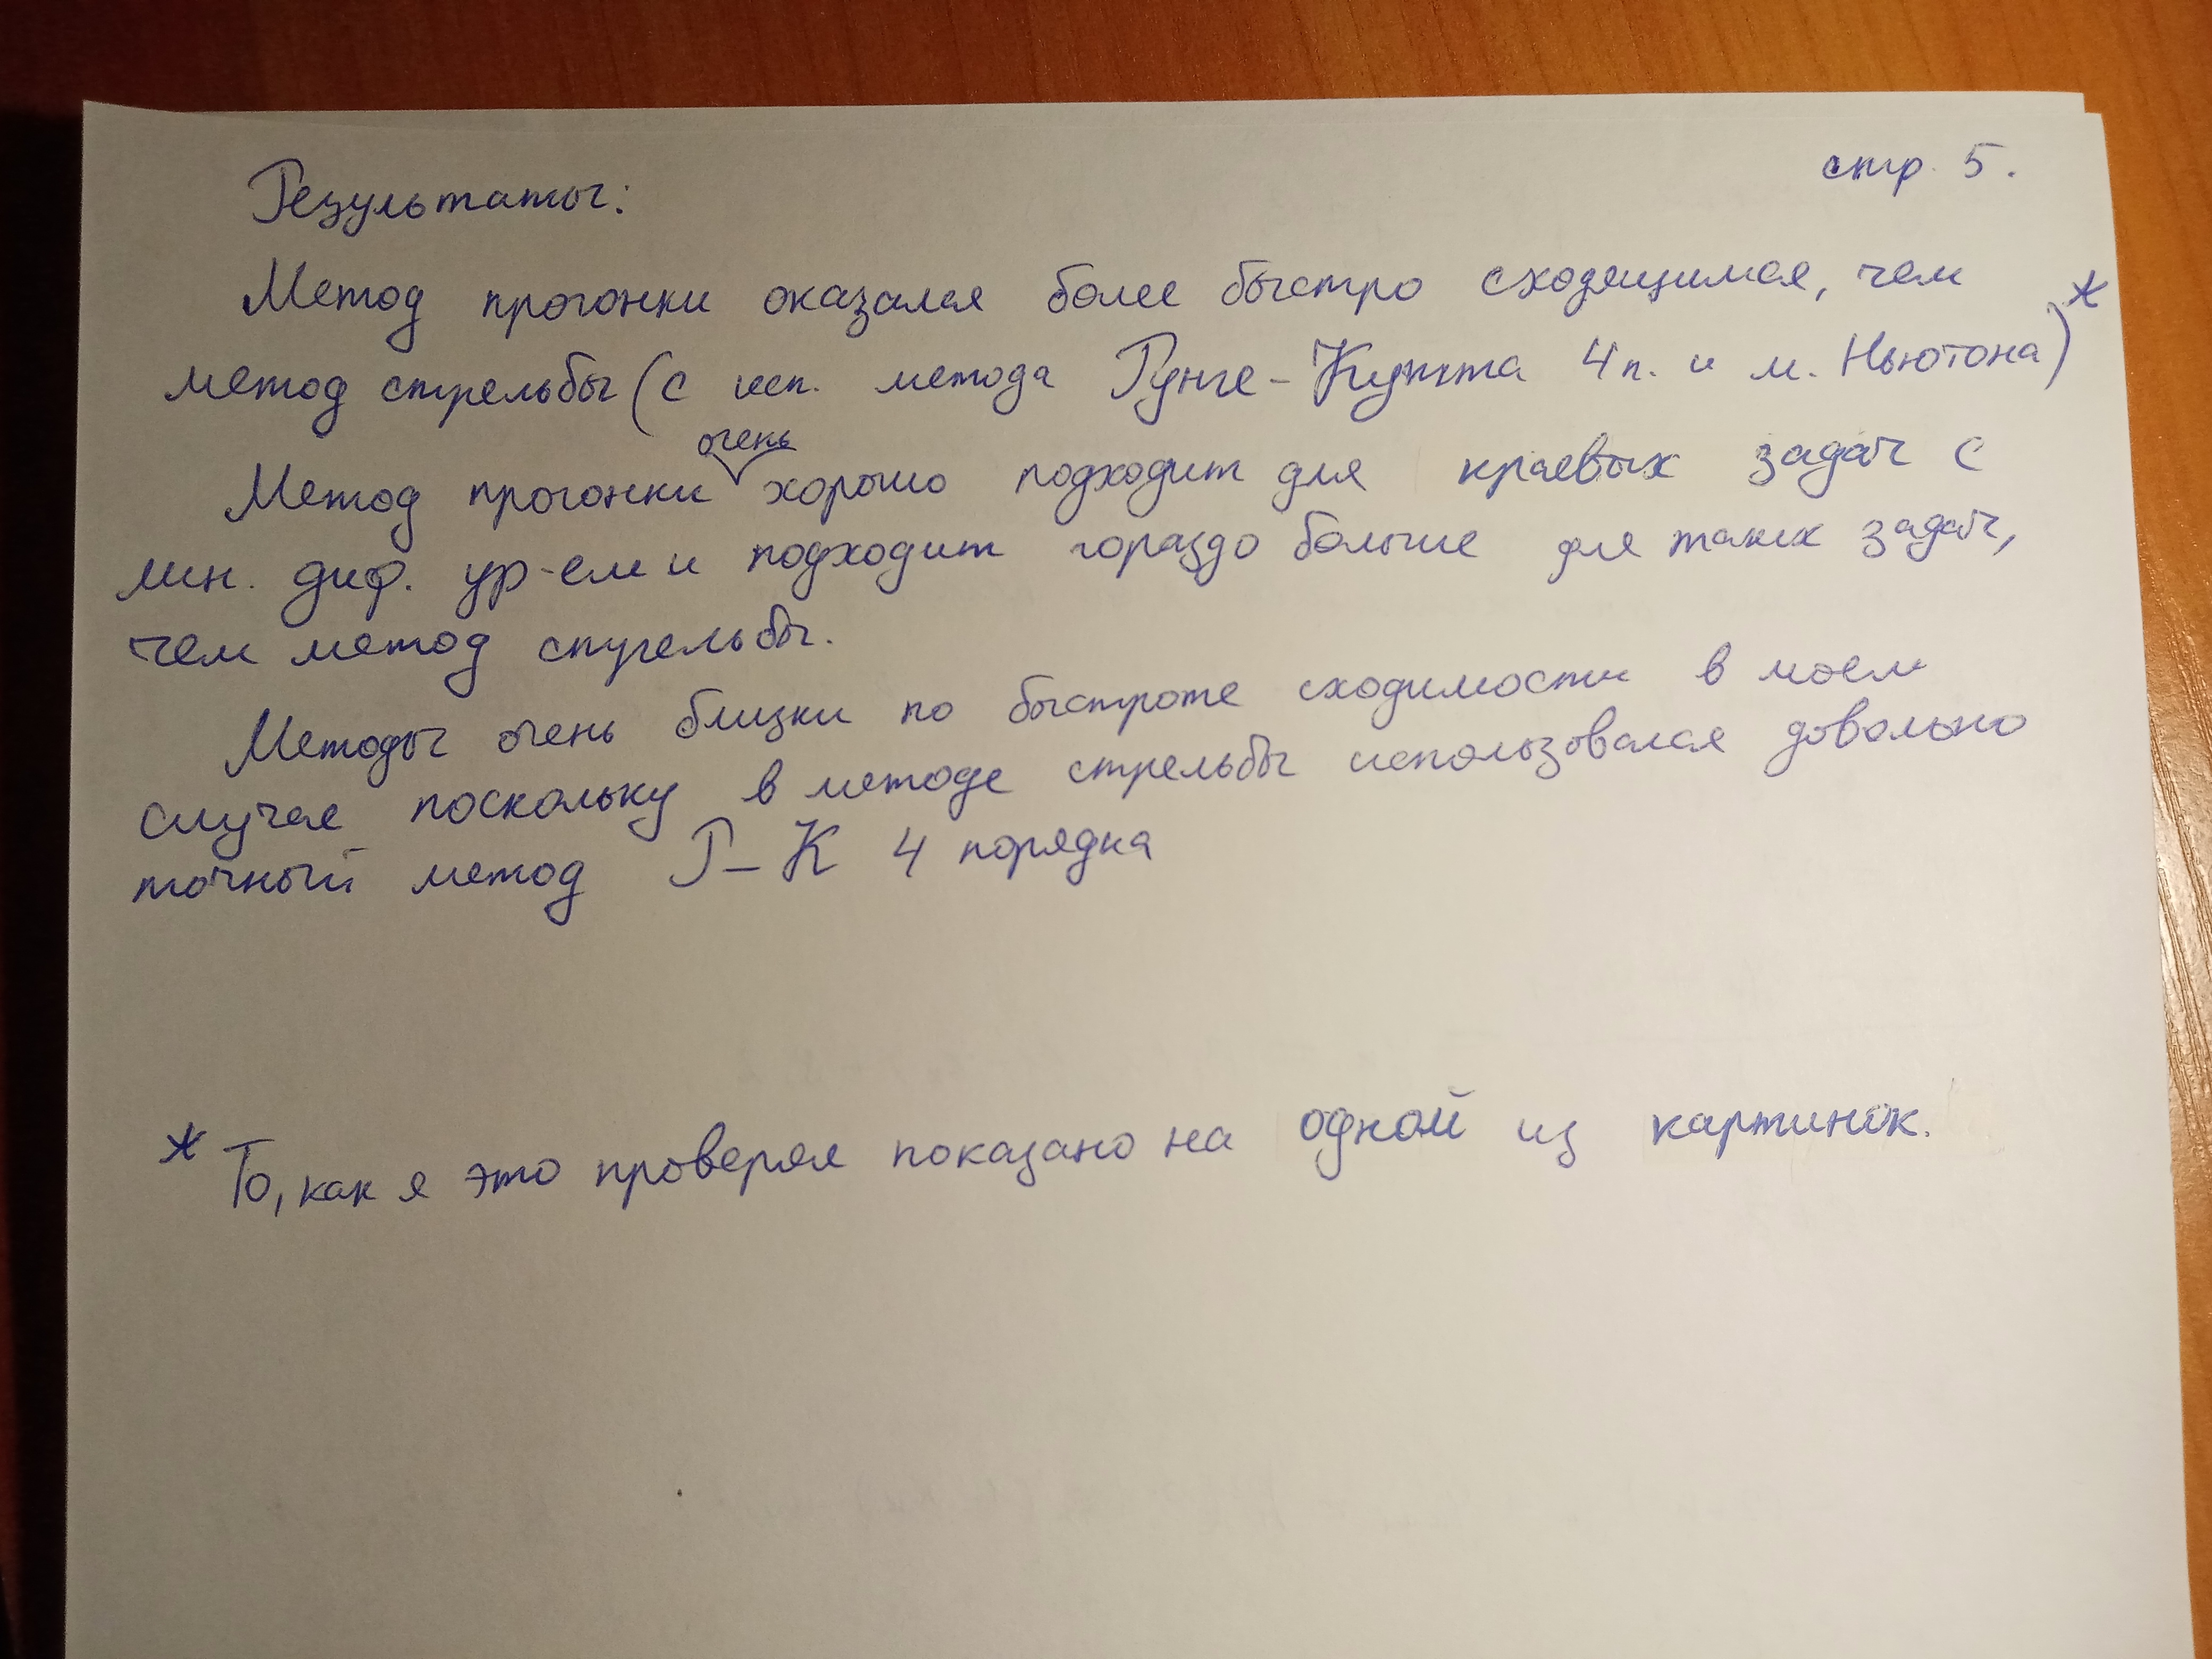 стр. 5.
Результаты:
Метод прогонки оказался более быстро сходящимся, чем
метод стрельбы (с исп. метода Рунге-Кутта 4п. и м. Ньютона)*
Метод прогонки очень хорошо подходит для краевых задач с
лин. диф. ур-ем и подходит гораздо больше для таких задач,
чем метод стрельбы.
Методы очень близки по быстроте сходимости в моем
случае поскольку в методе стрельбы использовался довольно
точный метод Р-К 4 порядка
* То, как я это проверял показано на одной из картинок.